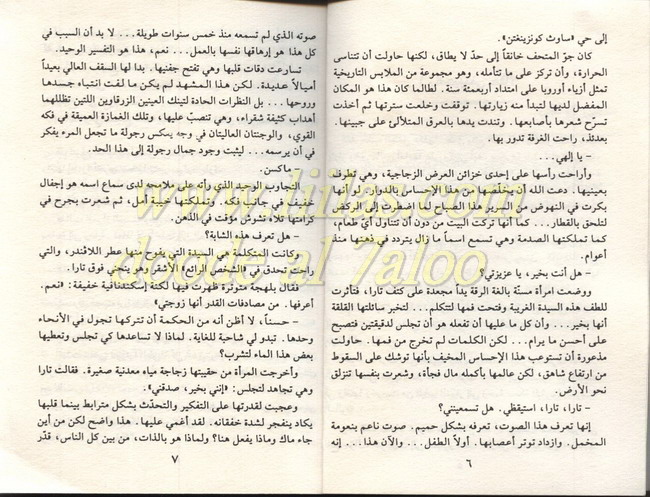 إلى حي «ساوث كونزينغتن».
كان جوّ المتحف خانقاً إلى حدّ لا يطاق، لكنها حاولت أن تتناسى
الحرارة، وأن تركز على ما تتأمله، وهو مجموعة من الملابس التاريخية
تمثل أزياء أوروبا على امتداد أربعمئة سنة. لطالما كان هذا هو المكان
المفضل لديها لتبدأ منه زيارتها. توقفت وخلعت سترتها ثم أخذت
تسرّح شعرها بأصابعها. وتندت يدها بالعرق المتلألئ على جبينها.
بعدئذ، راحت الغرفة تدور بها.
- يا إلهي...
وأراحت رأسها على إحدى خزائن العرض الزجاجية، وهي تطوف
بعينيها. دعت الله أن يخلّصها من هذا الإحساس بالدوار. لو أنها
بكرت في النهوض من السرير هذا الصباح لما اضطرت إلى الركض
لتلحق بالقطار... كما أنها تركت البيت من دون أن تتناول أيّ طعام،
كما تملكتها الصدمة وهي تسمع اسماً ما زال يتردد في ذهنها منذ
أعوام.
- هل أنت بخير، يا عزيزتي؟
ووضعت امرأة مسنّة بالغة الرقة يداً مجعدة على كتف تارا، فتأثرت
للطف هذه السيدة الغريبة وفتحت فمها لتتكلم... لتخبر سائلتها القلقة
أنها بخير... وأن كل ما عليها أن تفعله هو أن تجلس لدقيقتين فتصبح
على أحسن ما يرام... لكن الكلمات لم تخرج من فمها. حاولت
مذعورة أن تستوعب هذا الإحساس المخيف بأنها توشك على السقوط
من ارتفاع شاهق، لكن عالمها بأكمله مال فجأة، وشعرت بنفسها تنزلق
نحو الأرض.
- تارا، تارا، استيقظي. هل تسمعينني؟
إنها تعرف هذا الصوت، تعرفه بشكل حميم. صوت ناعم بنعومة
المخمل. وازداد توتر أعصابها. أولاً الطفل... والآن هذا... إنه
٦
صوته الذي لم تسمعه منذ خمس سنوات طويلة... لا بد أن السبب في
كل هذا هو إرهاقها نفسها بالعمل... نعم، هذا هو التفسير الوحيد.
تسارعت دقات قلبها وهي تفتح جفنيها. بدا لها السقف العالي بعيداً
أميالاً عديدة. لكن هذا المشهد لم يكن ما لفت انتباه جسدها
وروحها... بل النظرات الحادة لتينك العينين الزرقاوين اللتين تظللهما
أهداب كثيفة شقراء، وهي تنصبّ عليها، وتلك الغمازة العميقة في فكه
القوي، والوجنتان العاليتان في وجه يعكس رجولة ما تجعل المرء يفكر
في أن يرسمه... ليثبت وجود جمال رجولة إلى هذا الحد.
- ماكسن.
التجاوب الوحيد الذي رأته على ملامحه لدى سماع اسمه هو إجفال
خفيف في جانب فكه. وتملكتها خيبة أمل، ثم شعرت بجرح في
كرامتها تلاه تشوش مؤقت في الذهن.
- هل تعرف هذه الشابة؟
وكانت المتكلمة هي السيدة التي يفوح منها عطر اللافندر، والتي
راحت تحدق في «الشخص الرائع» الأشقر وهو ينحني فوق تارا.
فقال بلهجة متوترة ظهرت فيها لكنة إسكندنافية خفيفة: «نعم.
أعرفها. من مصادفات القدر أنها زوجتي».
- حسناً، لا أظن أنه من الحكمة أن تتركها تتجول في الأنحاء
وحدها. تبدو لي شاحبة للغاية. لماذا لا تساعدها كي تجلس وتعطيها
بعض هذا الماء لتشرب؟
وأخرجت المرأة من حقيبتها زجاجة مياه معدنية صغيرة. فقالت تارا
وهي تجاهد لتجلس: «إنني بخير، صدقني».
وعجبت لقدرتها على التفكير والتحدّث بشكل مترابط بينما قلبها
يكاد ينفجر لشدة خفقانه. لقد أغمي عليها. هذا واضح لكن من أين
جاء ماك وماذا يفعل هنا؟ ولماذا هو بالذات، من بين كل الناس، قدّر
٧
www.liilas.com
dode al 7aloo